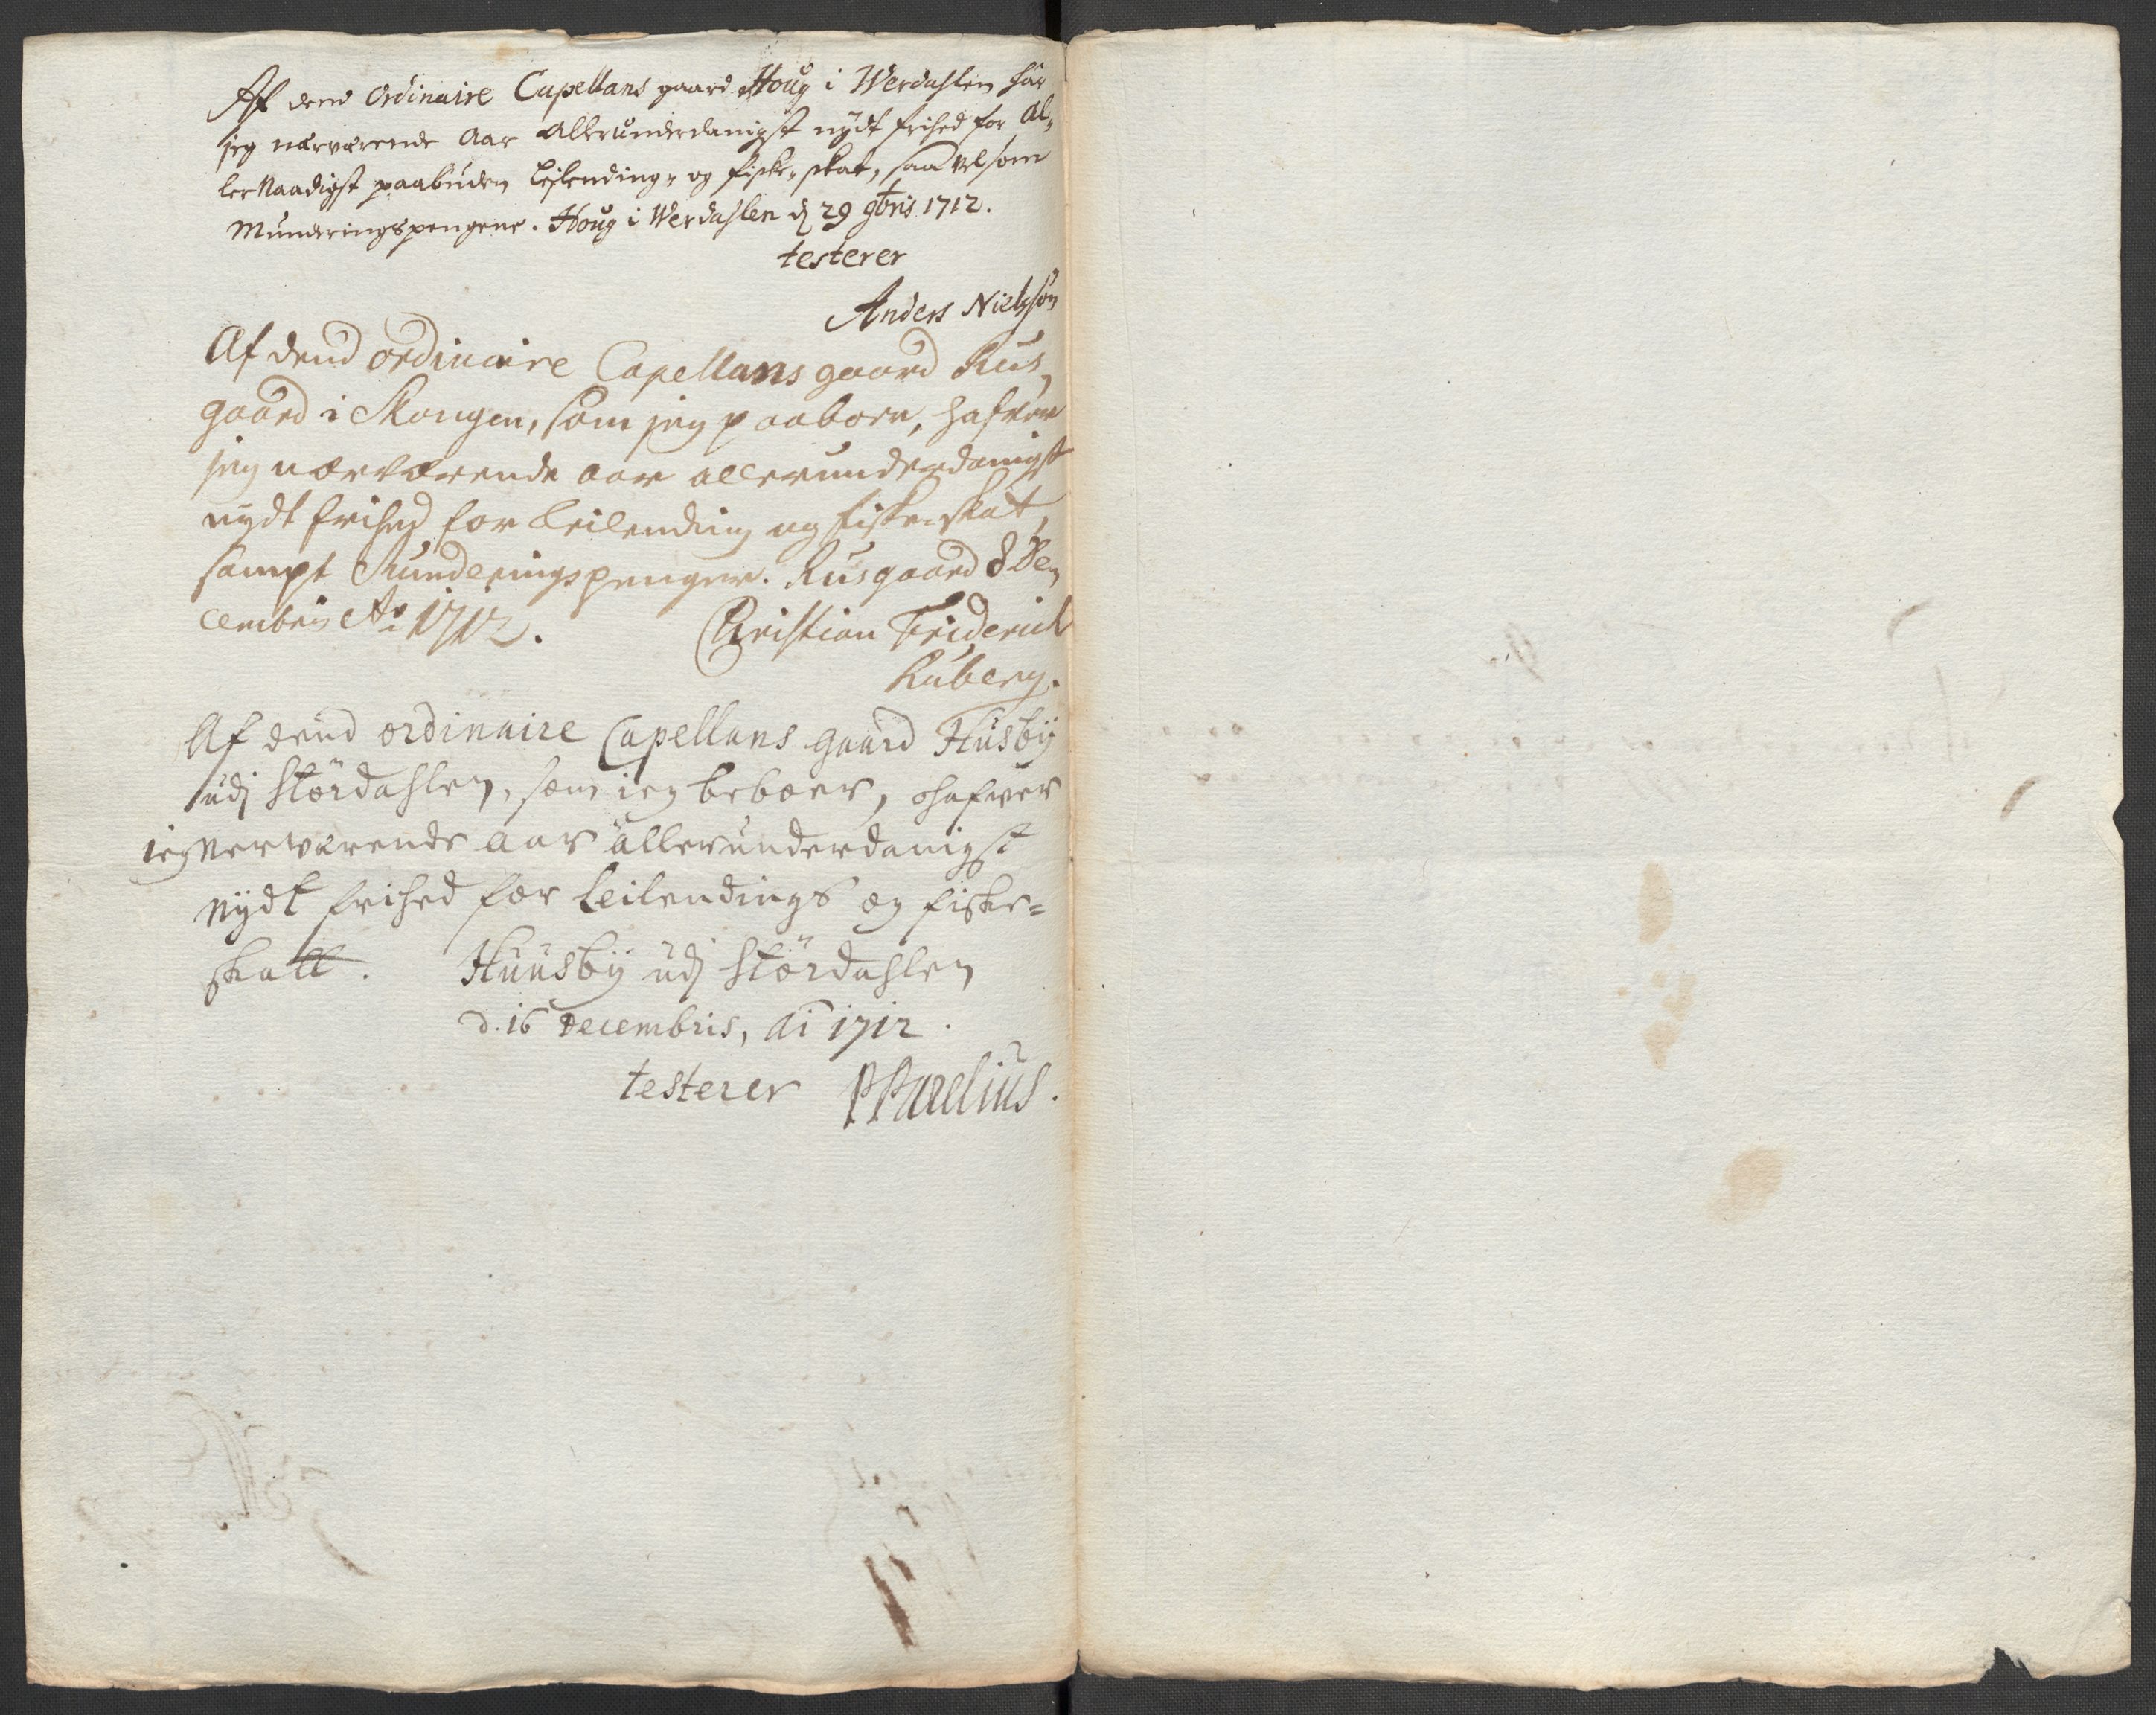 Af dend ordinaire Capellans gaard Houg i Werdahlen har
jeg nærværende Aar allerunderdanigst nÿdt frihed for Al„
ler Naadigst paabuden Lejlending„ og fiske„ skat, saa velsom
Munderingspengene. Houg i Werdahlen d 29 9bris 1712.
testerer
Anders Nielssøn
Af dend ordinaire Capellans gaard Rus„
gaard i Skougen, som jeg paaboer, hafver
jeg nærværende aar allerunderdanigst
nÿdt frihed for Leilending og fiske-skat,
sampt Munderingspenger. Rusgaard 8 De„
cembris Ao 1712. Christian Friderich
Ruberg.
Af dend ordinaire Capellans gaard Husbÿ
udj Størdahlen, som ieg beboer, hafver
ieg nerværende aar allerunderdanigst
nÿdt frihed for Leilendings og fiske=
skatt. Huusbÿ udj Størdahlen
d. 16 Decembris, Ai 1712.
testerer PParelius.